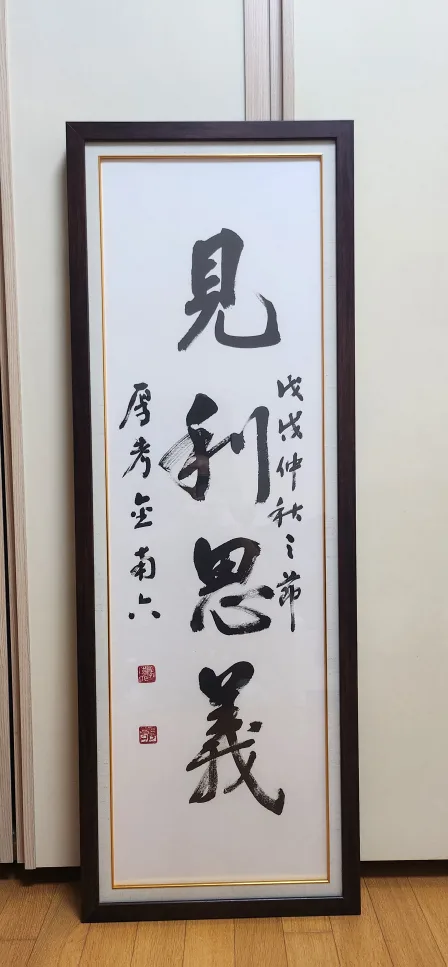 見利思義
戊戌仲秋之節
厚考 金南六